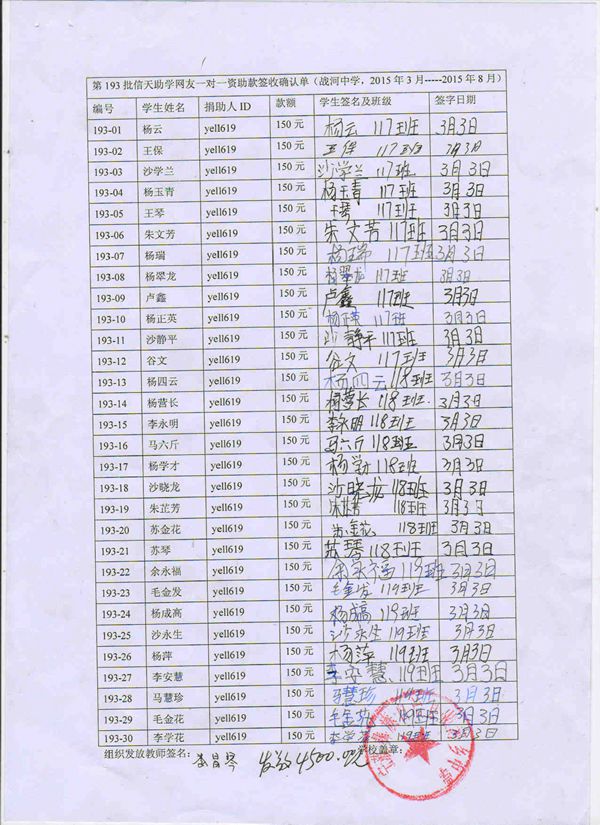 第 193 批信天助学网友一对一资助款签收确认单（战河中学，2015 年 3 月-----2015 年 8 月）
编号 学生姓名 捐助人 ID 款额 学生签名及班级 签字日期
193-01 杨云 yell619 150 元 杨云 117班 3月3日
193-02 王保 yell619 150 元 王保 117班 3月3日
193-03 沙学兰 yell619 150 元 沙学兰 117班 3月3日
193-04 杨玉青 yell619 150 元 杨玉青 117班 3月3日
193-05 王琴 yell619 150 元 王琴 117班 3月3日
193-06 朱文芳 yell619 150 元 朱文芳 117班 3月3日
193-07 杨瑞 yell619 150 元 杨瑞 117班 3月3日
193-08 杨翠龙 yell619 150 元 杨翠龙 117班 3月3日
193-09 卢鑫 yell619 150 元 卢鑫 117班 3月3日
193-10 杨正英 yell619 150 元 杨正英 117班 3月3日
193-11 沙静平 yell619 150 元 沙静平 117班 3月3日
193-12 谷文 yell619 150 元 谷文 117班 3月3日
193-13 杨四云 yell619 150 元 杨四云 118班 3月3日
193-14 杨营长 yell619 150 元 杨营长 118班. 3月3日
193-15 李永明 yell619 150 元 李永明 118班 3月3日
193-16 马六斤 yell619 150 元 马六斤 118班 3月3日
193-17 杨学才 yell619 150 元 杨学才 118班 3月3日
193-18 沙晓龙 yell619 150 元 沙晓龙 118班 3月3日
193-19 朱芷芳 yell619 150 元 118班 3月3日
193-20 苏金花 yell619 150 元 118班 3月3日
193-21 苏琴 yell619 150 元 苏琴 118班 3月3日
193-22 余永福 yell619 150 元 余永福 119班 3月3日
193-23 毛金发 yell619 150 元 毛金发 119班 3月3日
193-24 杨成高 yell619 150 元 杨成高 119班 3月3日
193-25 沙永生 yell619 150 元 沙永生 119班 3月3日
193-26 杨萍 yell619 150 元 杨萍 119班 3月3日
193-27 李安慧 yell619 150 元 李安慧 119班 3月3日
193-28 马慧珍 yell619 150 元 马慧珍 119班 3月3日
193-29 毛金花 yell619 150 元 毛金花 119班 3月3日
193-30 李学花 yell619 150 元 李学花 119班 3月3日
组织发放教师签名： 发放4500.00元 学校盖章：